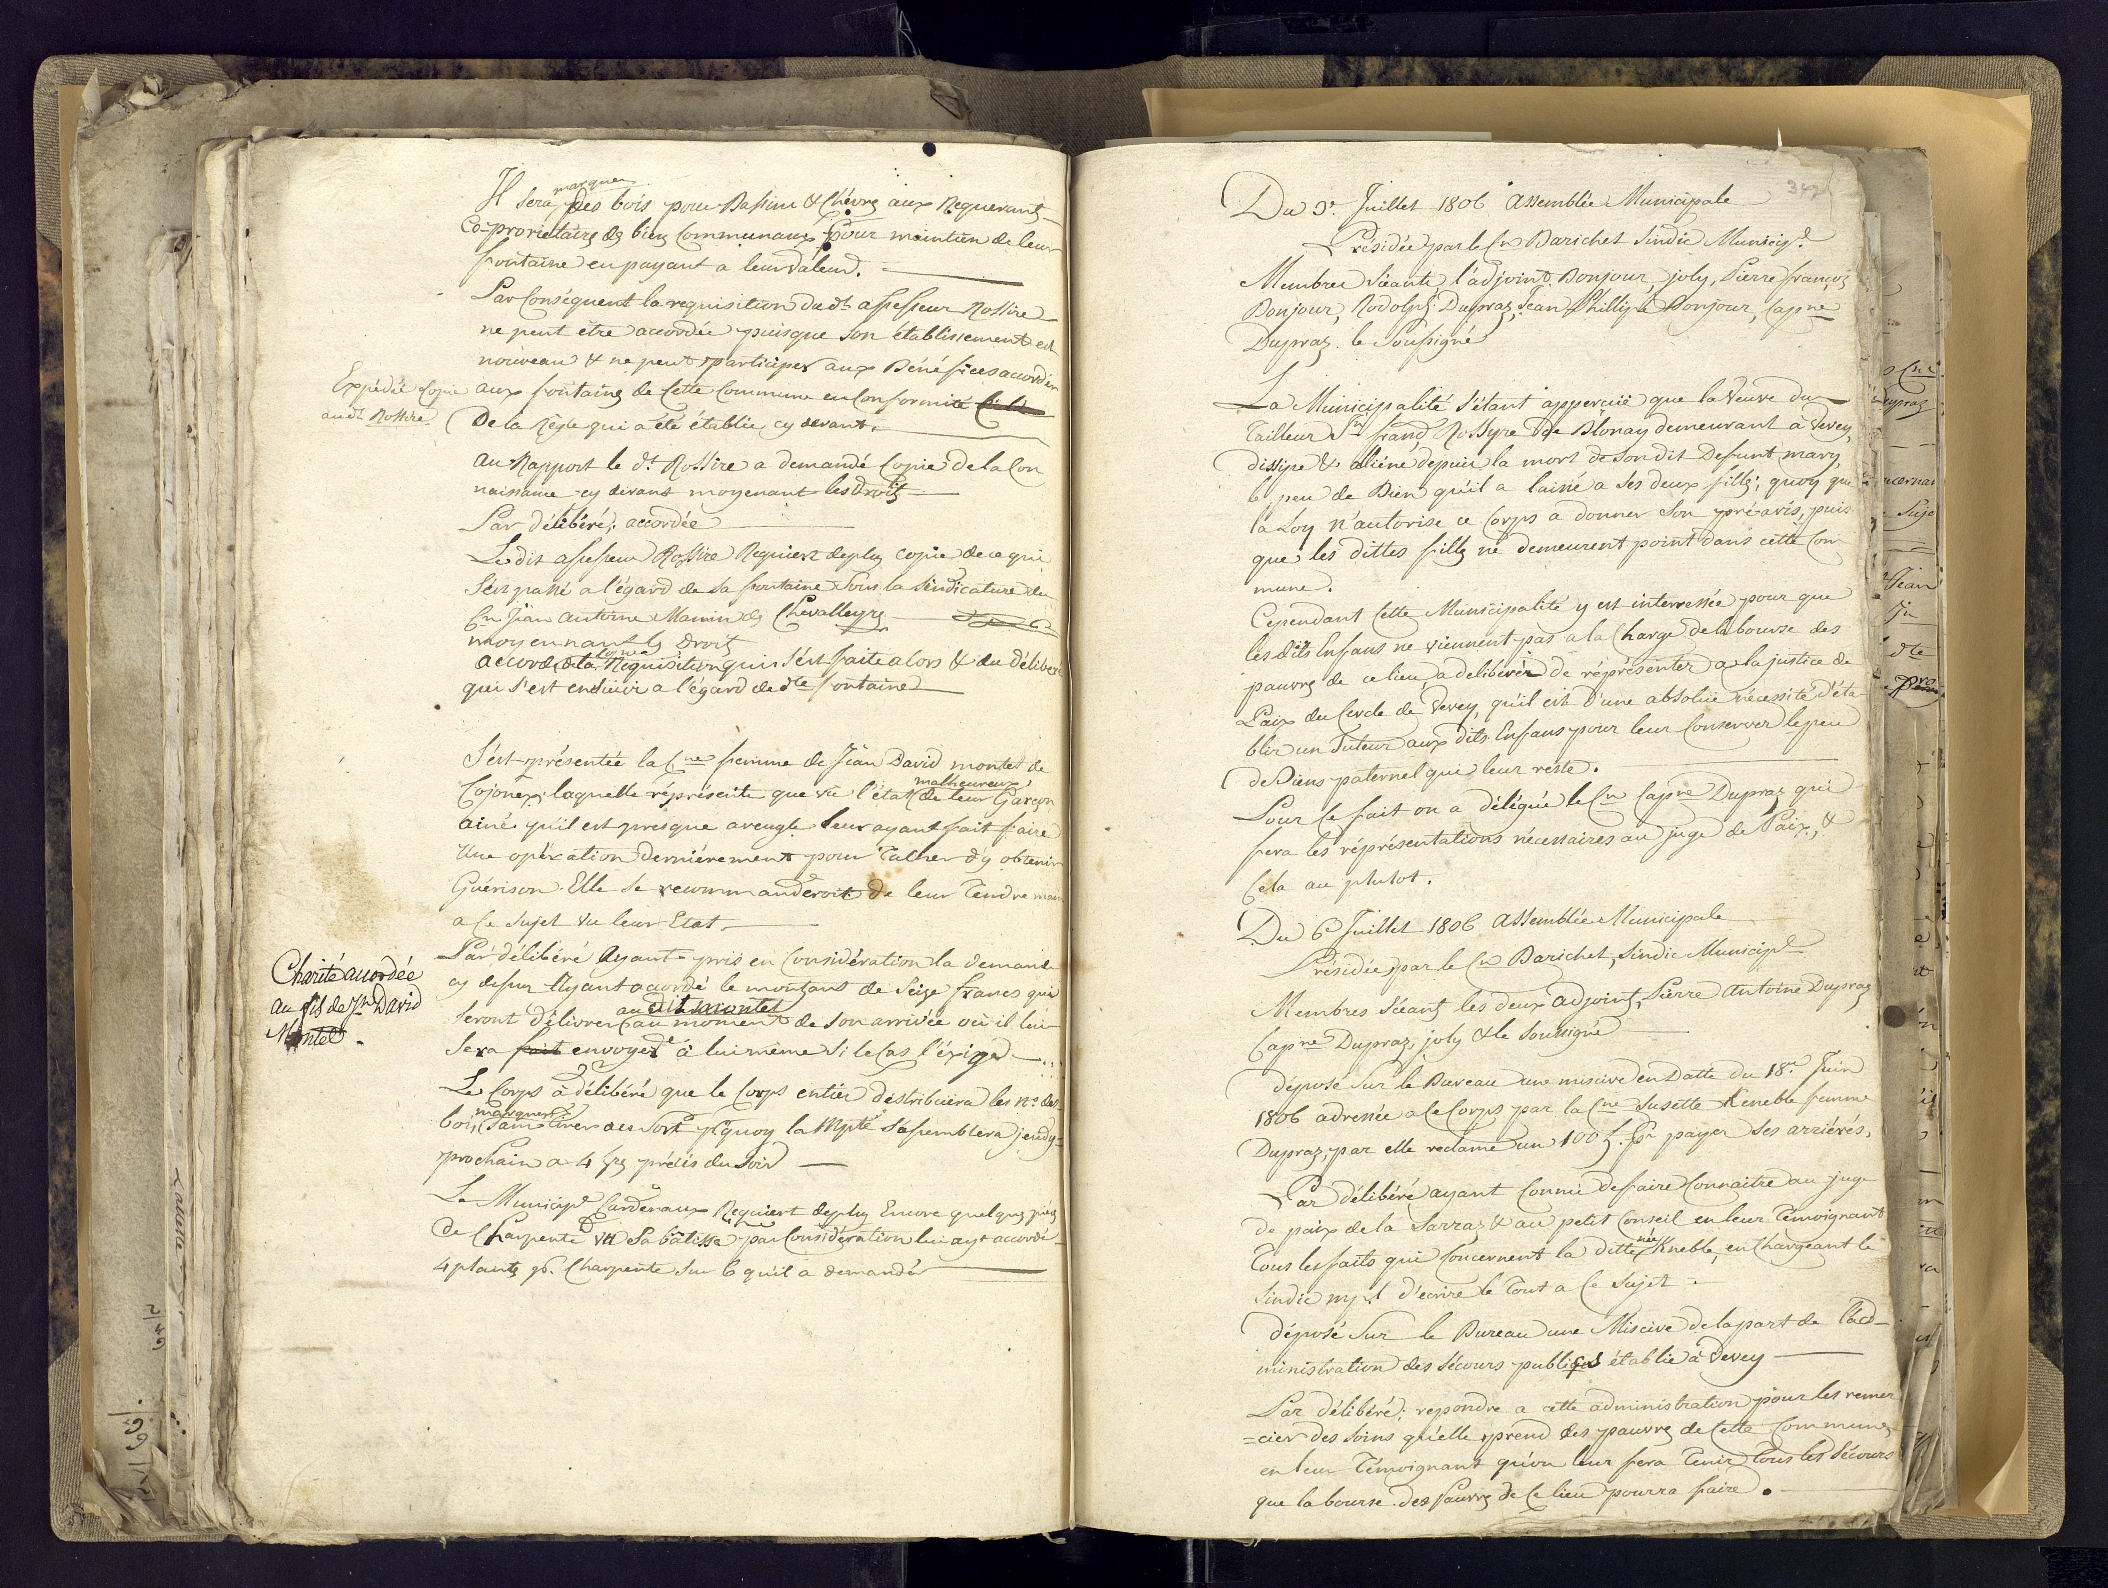 Il sera marquer des bois pour Bassins & Chévre aux Requerants
Co-proprietaires des biens Communaux pour maintien de leur
fontaine en payant a leur valeur.
Par Conséquent la requisition du dt assesseur Rossire
ne peut être accordée puisque son établissement est
nouveau & ne peut participer aux Bénéfices accordés
aux fontaines de cette Commune en Conformité
De la Règle qui a été établie cy devant.
Expédié Copie
audt Rossire.
au Rapport le dt Rossire a demandé Copie de la Con
naissance cy devant moyenant les droits
Par délibéré; accordée
Le dit assesseur Rossire Requiert de plus copie de ce qui
s'est passé a l'égard de sa fontaine sous la sindicature du
Cn Jean Antoine Mamin des Chevalleyres
moyennant les Droits
accordé de la Copie Requisition qui s'est faite alors & du délibéré
qui s'est ensuivi a l'égard de dte fontaine
S'est présentée la Cne femme de Jean David montet de
Cojonex, laquelle réprésente que vu l'état malheureux de leur Garçon
ainé qu'il est presque aveugle leur ayant fait faire
Une opération derniérement pour Tacher d'y obtenir
Guérison. Elle se recommanderoit de leur Tendre main
a Ce sujet vu leur Etat.
Charité accordée
au fils de Jn David
Montet.
Par délibéré Ayant pris en Considération la demande
cy dessus Ayant accordé le montant de Seize francs qui
seront délivrer au dit montet au moment de son arrivée où il lui
sera fait envoyer à lui même si le Cas l'éxige
Le Corps à délibéré que le Corps entier distribuera les Nos des
bois marquer sans tirer au sort pr quoy la Mpté s'assemblera jeudy
prochain a 4 hrs précis du soir
Le Municipl Cardenaux Requiert de plus Encore quelques piéces
de Charpente vu sa batisse par Considération lui ayt accordé
4 plants pr. Charpente sur 6 qu'il a demandér
Du 3e. Juillet 1806 assemblée Municipale
Présidée par le Cn Barichet Sindic Municipl.
Membres Séeants l'adjoint Bonjour, joly, Pierre françois
Bonjour, Rodolph Dupraz, Jean Phillipe Bonjour, Capne
Dupraz. le soussigné
La Municipalité s'étant apperçuë que la Veuve du
Tailleur Jn frans Rossyre de Blonay demeurant à Vevey,
dissipe & aliéne depuis la mort de son dit Defunt mary,
le peu de Bien qu'il a laissé a ses deux filles; quoy que
la Loy n'autorise ce Corps a donner son pré-avis, puis
que les dittes filles ne demeurent point dans cette Com
mune.
Cependant cette Municipalité y est interressée pour que
les dits Enfans ne viennent pas a la Charge de la bourse des
pauvres de ce lieu a deliberér de réprésenter a la justice de
Paix du Cercle de Vevey, qu'il est d'une absoluë nécessité d'éta-
blir un Tuteur aux dits Enfans pour leur Conserver le peu
de Biens paternel qui leur reste.
Pour Ce fait on a délégué le Cn Capne Dupraz qui
fera les réprésentations nécessaires au juge de Paix, &
Cela au plutot.
Du 6e Juillet 1806 assemblée Municipale
Présidée par le Cn Barichet, Sindic Municipl
Membres Séeants les deux adjoints, Pierre Antoine Dupraz
Capne Dupraz, joly & le Soussigné
déposé Sur le Bureau une miscive en Datte du 18e Juin
1806 adressée a Ce Corps par la Cne Susette Keneble femme
Dupraz, par elle reclame un 100 f. pr payer ses arriérés,
Par délibéré ayant Connu de faire Connaitre au juge
de paix de la Sarraz & au petit Conseil en leur Témoignant
Tous les faits qui Concernent la ditte née Kneble, en Chargeant le
Sindic mpl d'écrire le Tout a Ce Sujet.
déposé Sur le Bureau une Miscive de la part de l'ad-
ministration des Sécours publics établie à Vevey
Par délibéré; repondre a cette administration pour les remer
=cier des Soins qu'elle prend des pauvres de Cette Commune
en leur Témoignant qu'on leur fera Tenir Tous les Sécours
que la bourse des Pauvres de Ce lieu pourra faire.